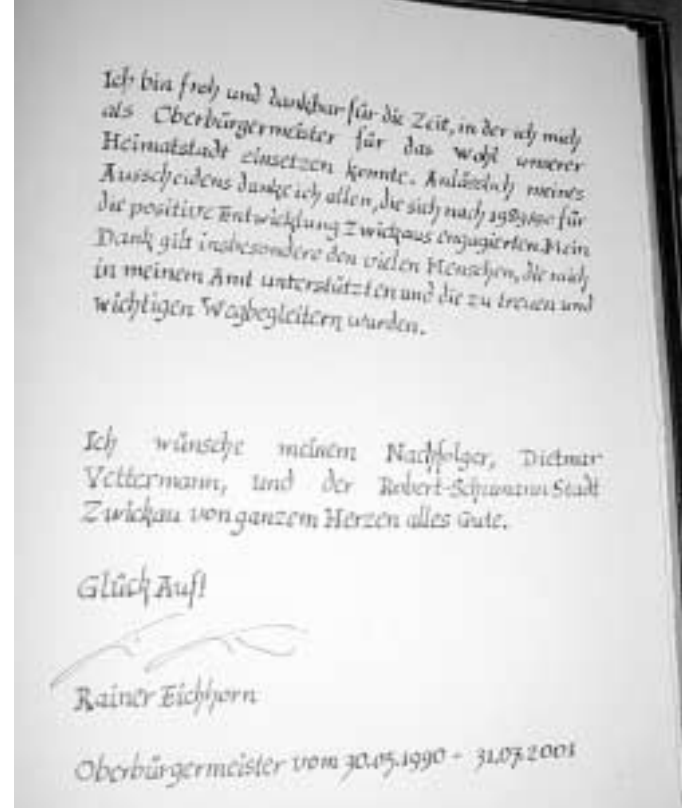 Ich bin froh und dankbar für die Zeit, in der ich mich
als Oberbürgermeister für das Wohl unserer
Heimatstadt einsetzen konnte. Anlässlich meines
Ausscheidens danke ich allen, die sich nach 1989/90 für
die positive Entwicklung Zwickaus engagierten. Mein
Dank gilt insbesondere den vielen Menschen, die mich
in meinem Amt unterstützten und die zu treuen und
wichtigen Wegbegleitern wurden.
Ich wünsche meinem Nachfolger, Dietmar
Vettermann, und der Robert-Schumann Stadt
Zwickau von ganzem Herzen alles Gute.
Glück Auf!
Rainer Eichhorn
Oberbürgermeister vom 30.05.1990 - 31.07.2001